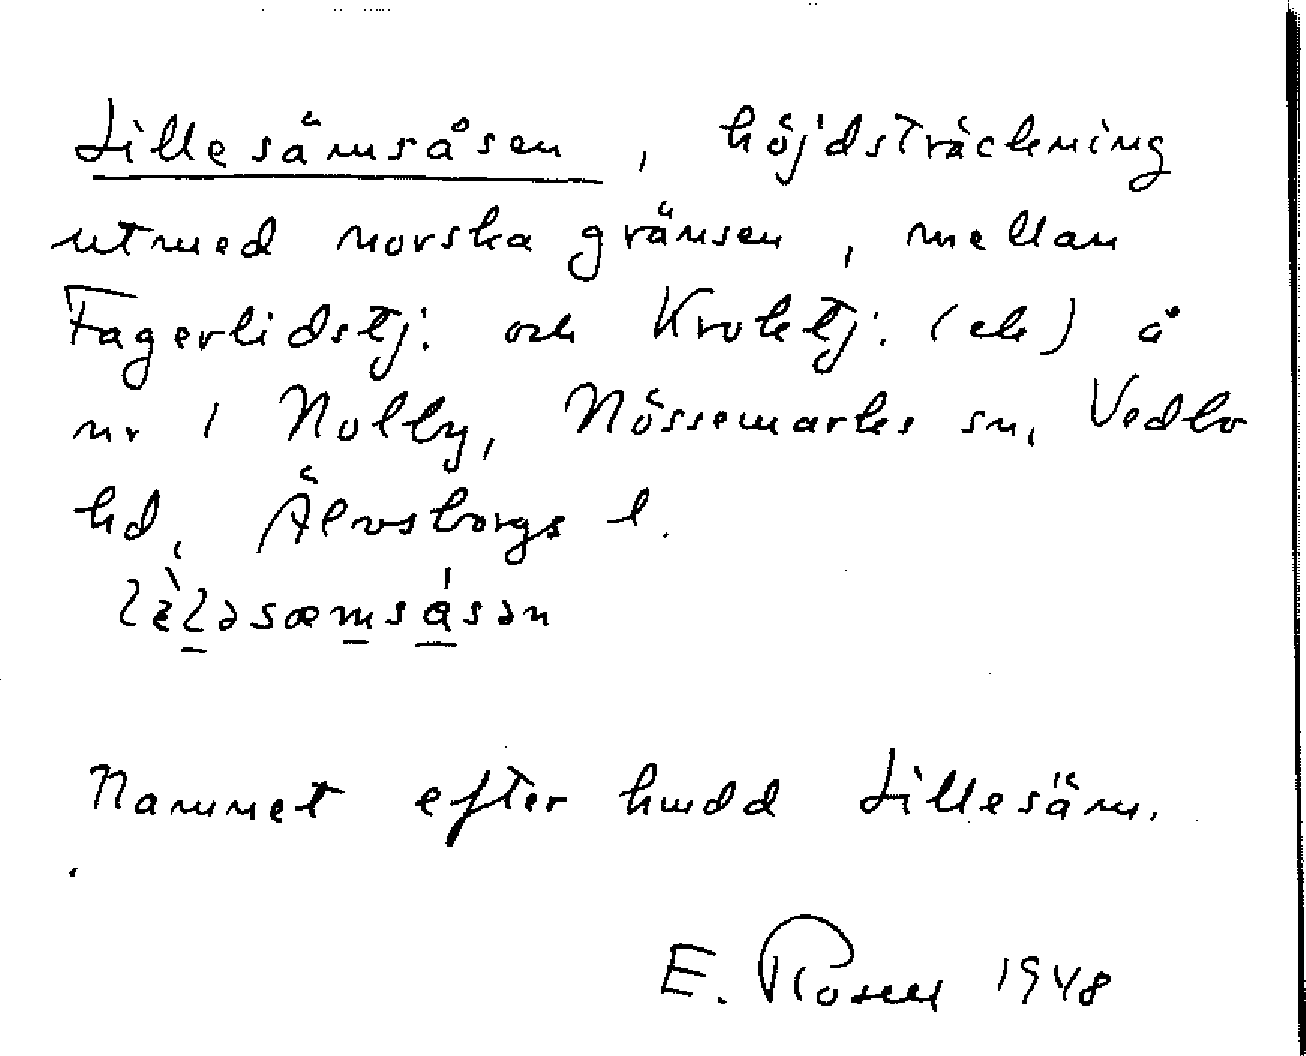 Lillesämsåsen, höjdsträckning
utmed norska gränsen, mellan
Fagerlidstj. och Kroktj. (ek) å
nr 1 Nolby, Nössemarks sn, Vedbo
hd, Älvsborgs l.
Namnet efter hmdd Lillesäm.
E. Rosell 1948